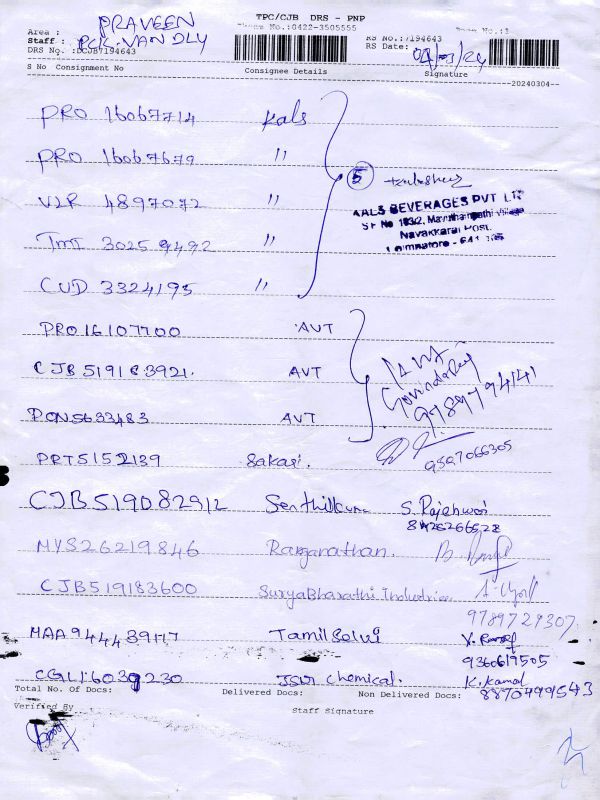 TPC/CJB DRS - PNP
PRAVEEN
Area :
Phone No.:0422-3505555
RS No.:7194643
Page No.:1
Staff : VAN DLY
RS Date: 04/03/24
DRS No. :DCJB7194643
S No Consignment No Consignee Details Signature
20240304
PRO 16067714 Kals
PRO 16067679 "
VLR 4897072 "
5
AALS BEVERAGES PVT LTD
SF No 183/2,
Navakkarai Post,
Coimbatore - 641 105
TMT 30259492 "
CUD 3324195 "
PRO16107700 AVT
CJB 519183921. AVT
Govindaraj
9789794141
PON5633483 AVT
9597066305
PRT5152139 Sakasi.
CJB519082912 Senthilkum S. Rajeshwari
8428266528
MYS26219846 Ranganathan. B
CJB519183600 SuryaBharathi Industries
9789729307.
MAA944439177 Tamil Selvi V.
9360619505
CGL16039230 JSW chemical. K. Kamal
8870499543
Total No. Of Docs: Delivered Docs: Non Delivered Docs:
Verified By Staff Signature